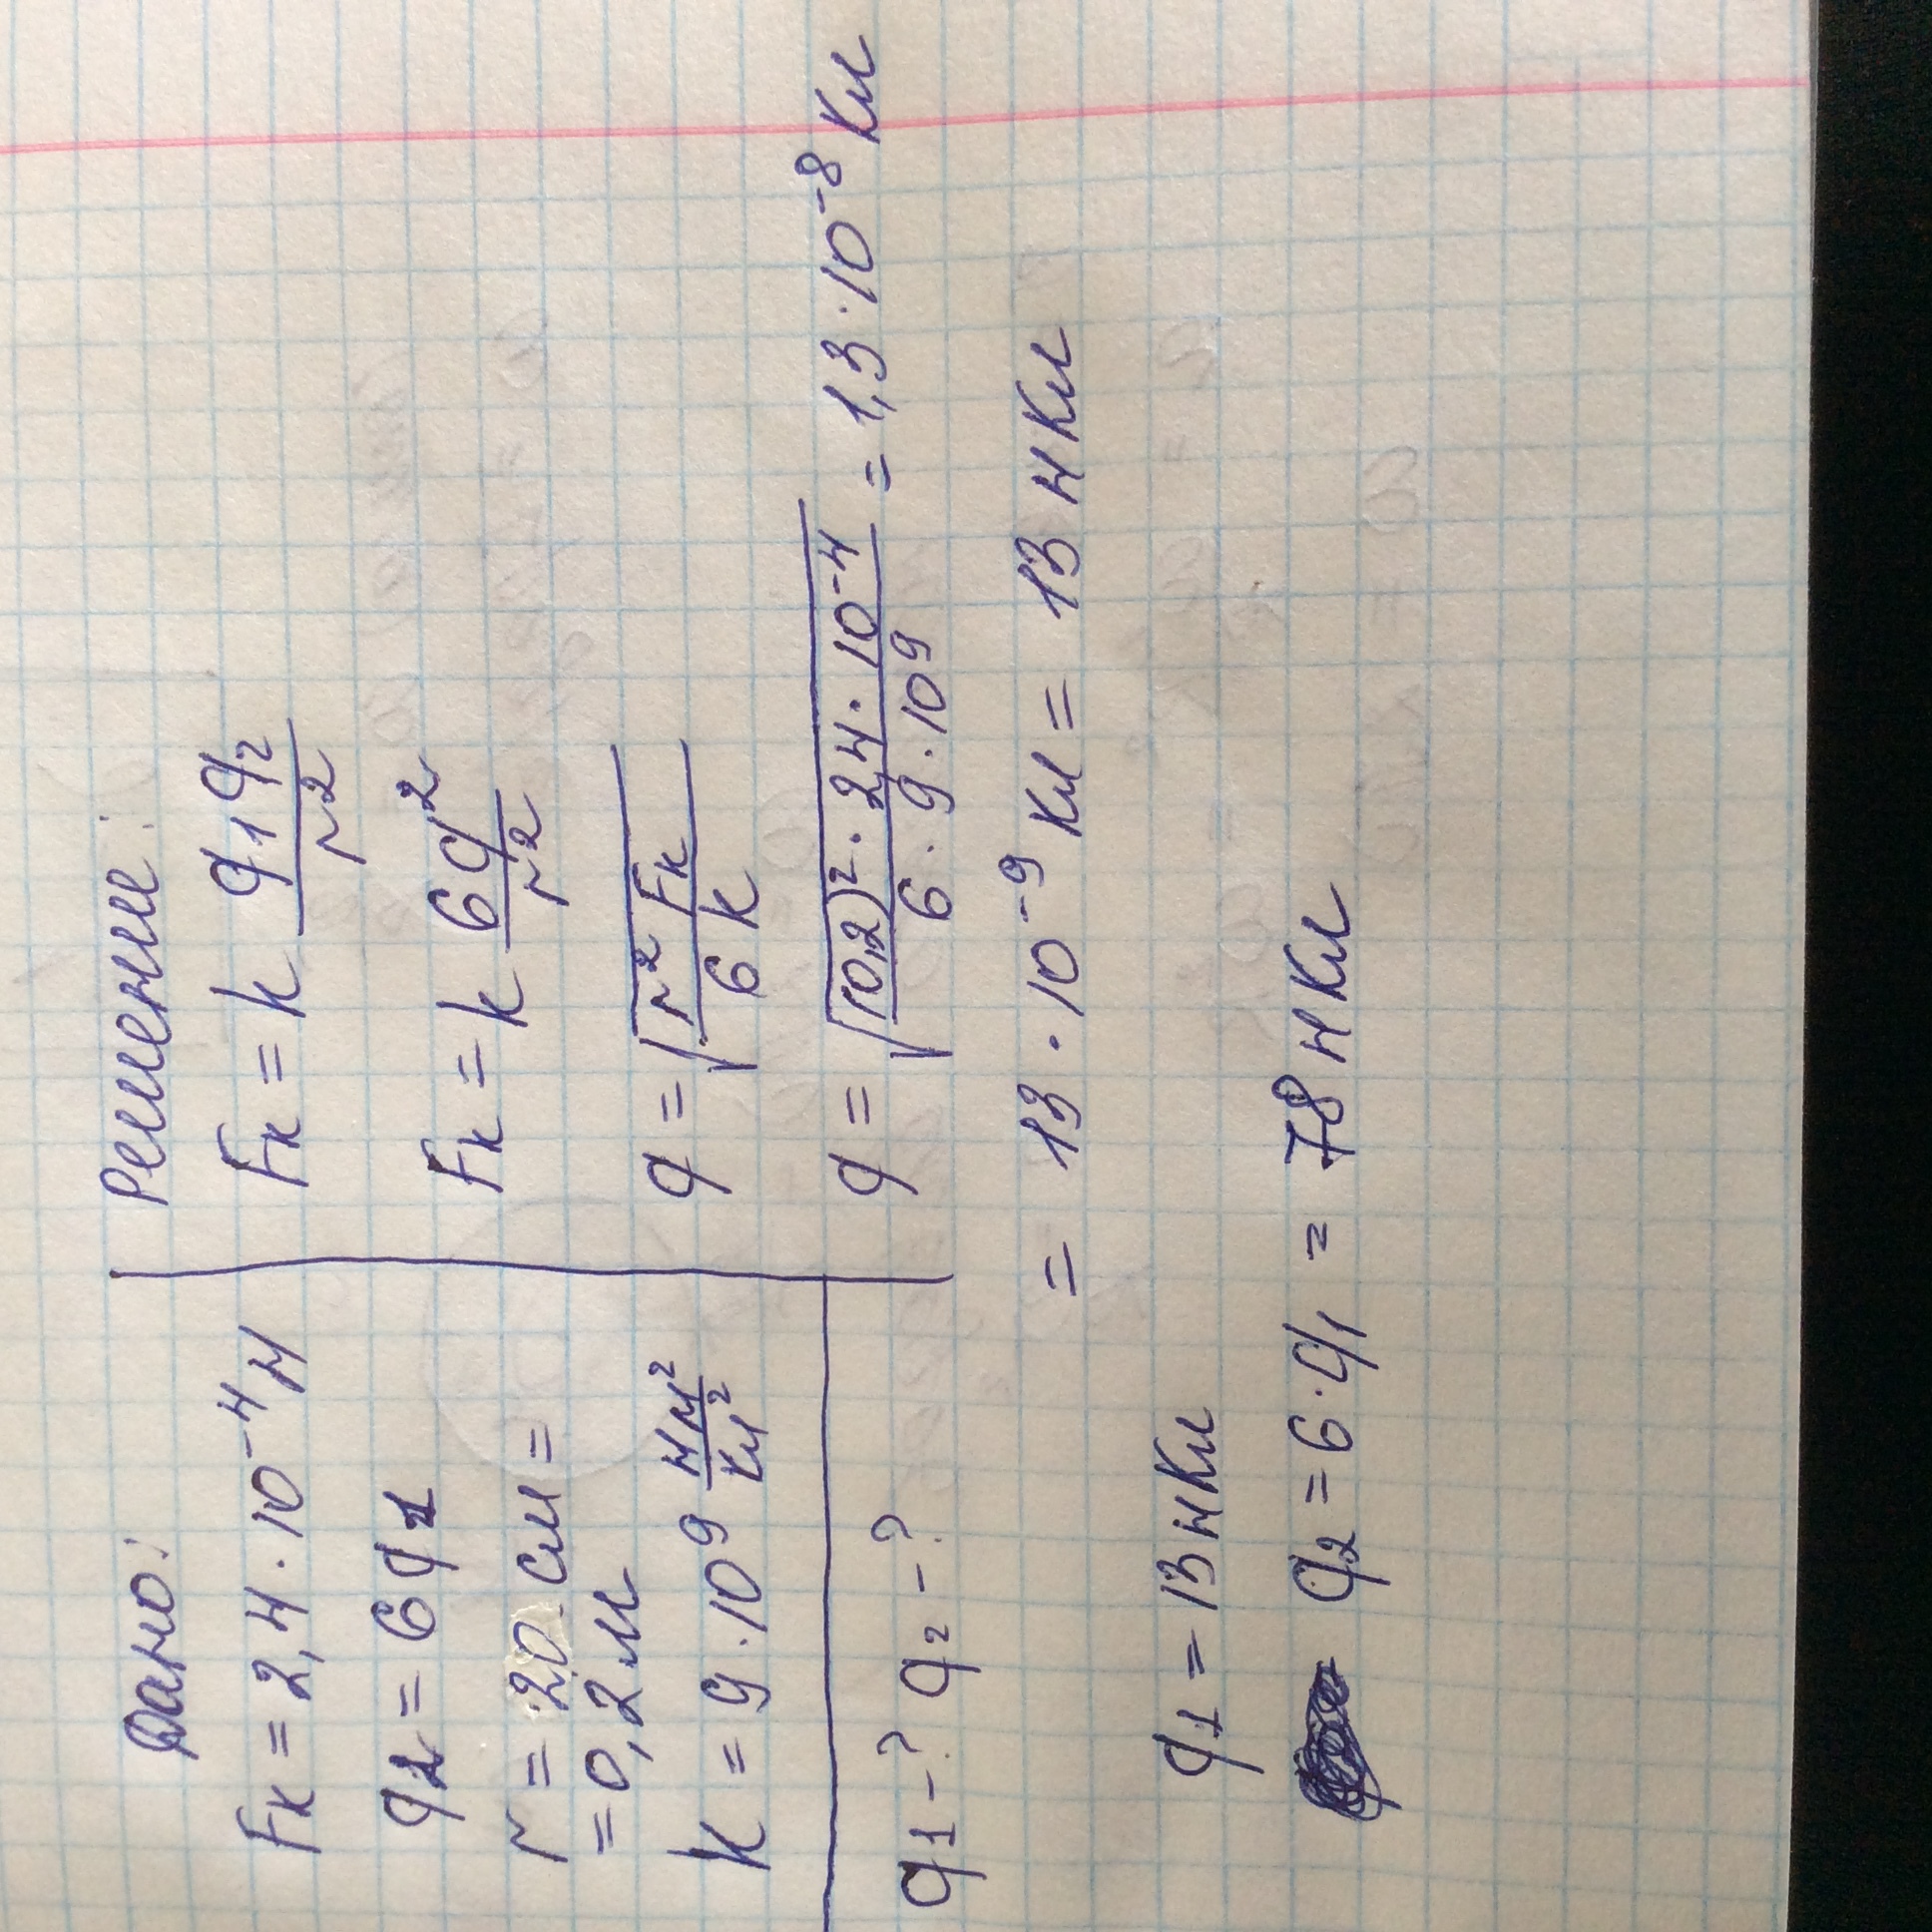 Дано:
Fк = 2,4 · 10⁻⁴ Н
q₂ = 6q₁
r = 20 см =
= 0,2 м
k = 9 · 10⁹ Нм²/Кл²
q₁ - ? q₂ - ?
Решение:
Fк = k q₁q₂/r²
Fк = k 6q²/r²
q = √(r² Fк/6k)
q = √((0,2)² · 2,4 · 10⁻⁴/6 · 9 · 10⁹) = 1,3 · 10⁻⁸ Кл
= 13 · 10⁻⁹ Кл = 13 нКл
q₁ = 13 нКл
q₂ = 6 · q₁ = 78 нКл